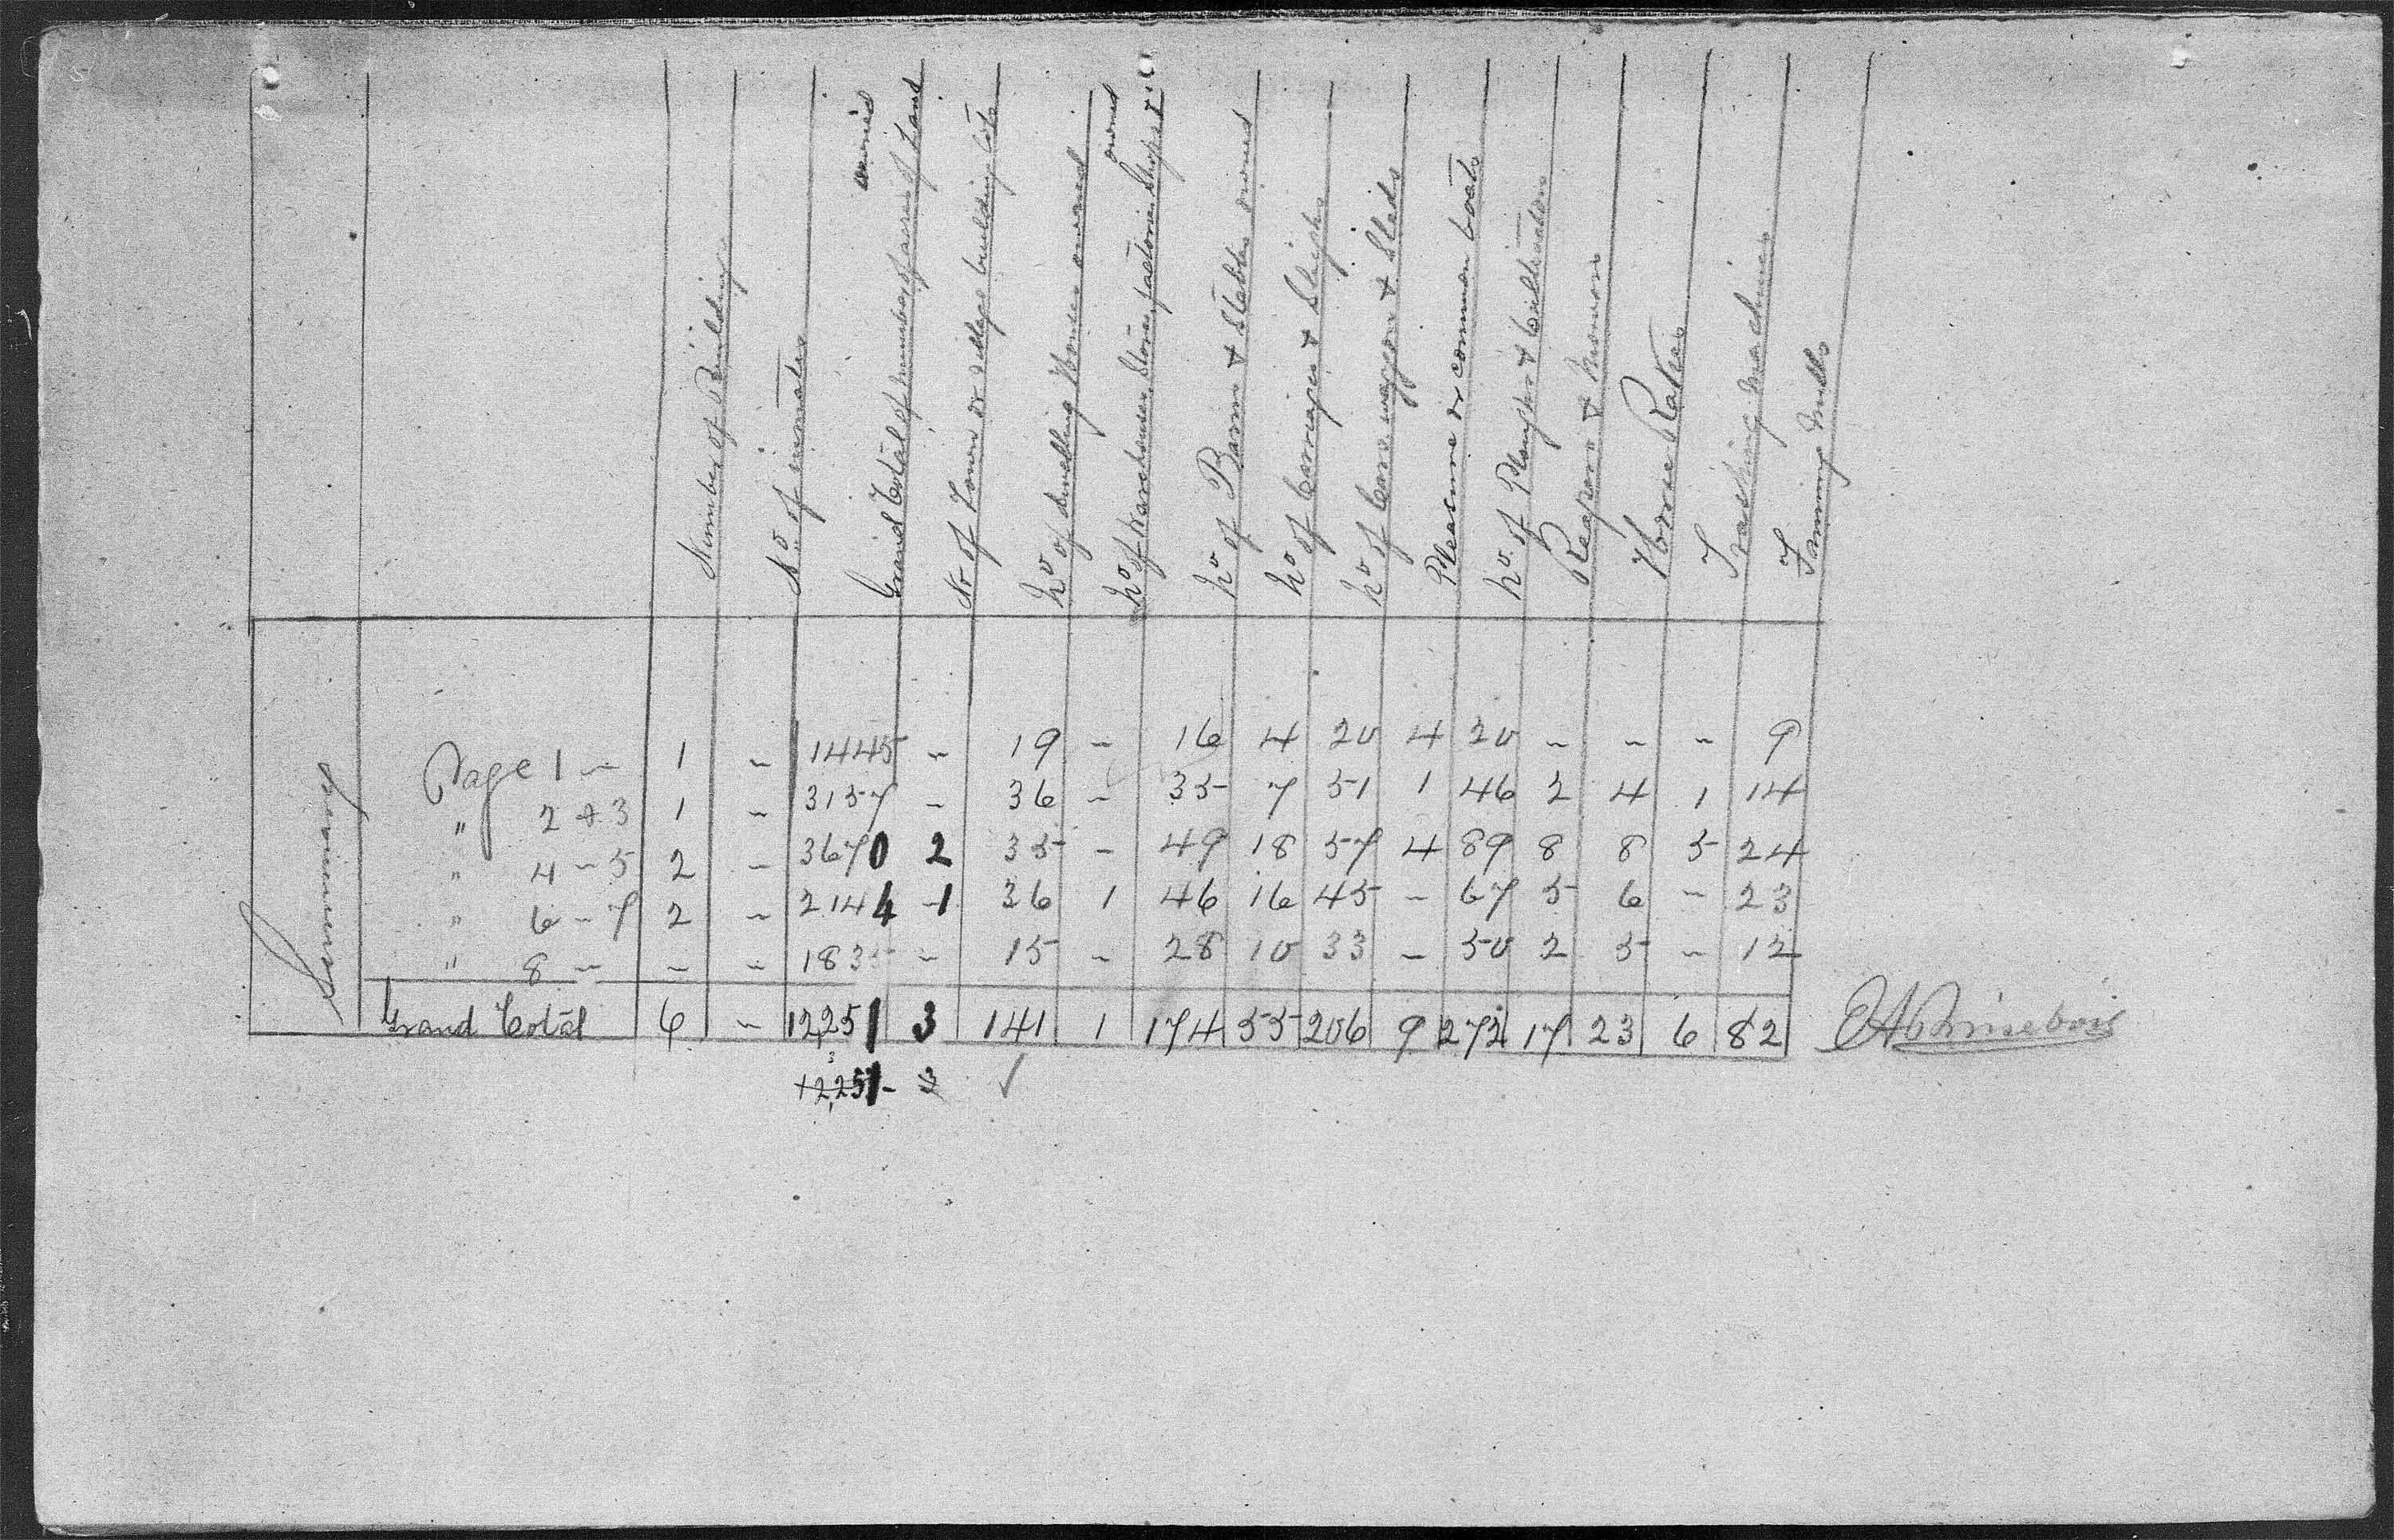 Number of Building
No of inmates
Grand total of number of acres of Land owned
No of Town or village building lots
No of dwelling Houses owned
No of Warehouses, Stores, factories, Shops &c owned
No of Barns & Stables owned
No of Carriages & Sleighs
No of Cars waggons & Sleds
Pleasure or common boats
No of Ploughs & Cultivators
Reapers & Mowers
Horse Rakes
Trashing Machines
Fanning Mills
Summary
Page 1 - 1 - 1445 - 19 - 16 4 20 4 20 - - - 9
" 2 & 3 1 - 3157 - 36 - 35 7 51 1 46 2 4 1 14
" 4 - 5 2 - 3670 2 35 - 49 18 57 4 89 8 8 5 24
" 6 - 7 2 - 2144 1 36 1 46 16 45 - 67 5 6 - 23
" 8 - - - 1835 - 15 - 28 10 33 - 50 2 5 - 12
Grand Total 6 - 12251 3 141 1 174 55 206 9 272 17 23 6 82
12,251 - 3 ✓